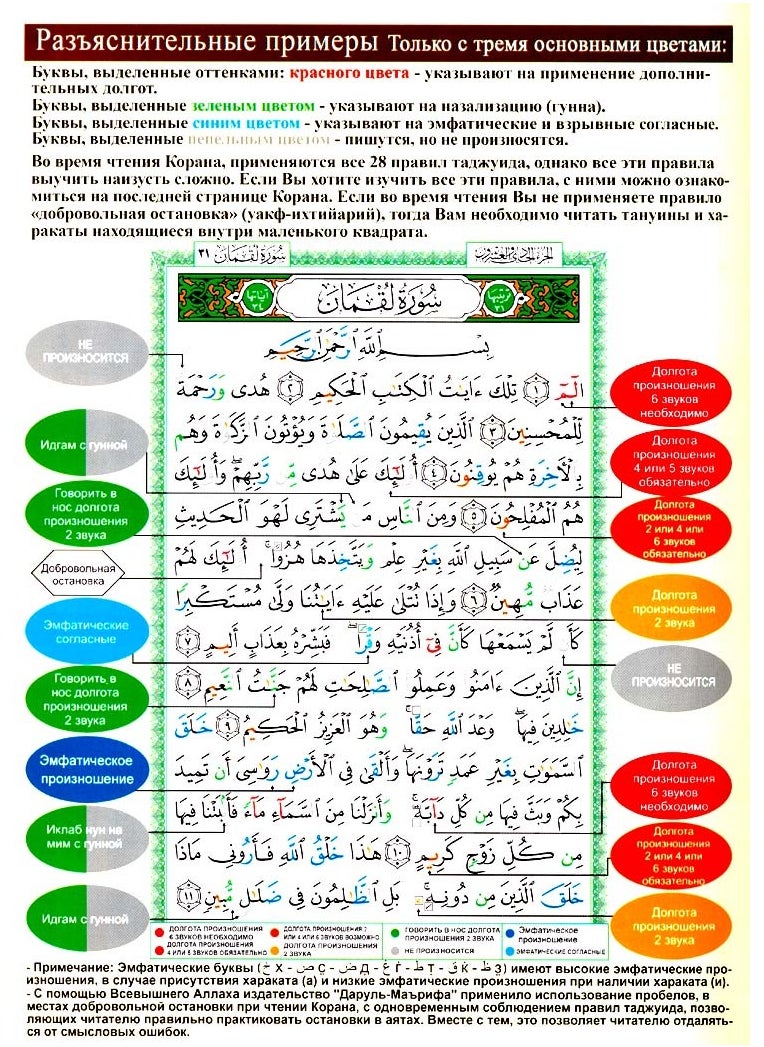 Разъяснительные примеры Только с тремя основными цветами:
Буквы, выделенные оттенками: красного цвета - указывают на применение дополни-
тельных долгот.
Буквы, выделенные зеленым цветом - указывают на назализацию (гунна).
Буквы, выделенные синим цветом - указывают на эмфатические и взрывные согласные.
Буквы, выделенные пепельным цветом - пишутся, но не произносятся.
Во время чтения Корана, применяются все 28 правил таджуида, однако все эти правила
выучить наизусть сложно. Если Вы хотите изучить все эти правила, с ними можно ознако-
миться на последней странице Корана. Если во время чтения Вы не применяете правило
«добровольная остановка» (уакф-ихтийарий), тогда Вам необходимо читать тануины и ха-
ракаты находящиеся внутри маленького квадрата.
الجزء الحادي والعشرون
سورة لقمان ٣١
ترتيبها ٣١
سُورَةُ لُقْمَانَ
آياتها ٣٤
بِسْمِ ٱللَّهِ ٱلرَّحْمَٰنِ ٱلرَّحِيمِ
الٓمٓ ١ تِلْكَ ءَايَٰتُ ٱلْكِتَٰبِ ٱلْحَكِيمِ ٢ هُدًى وَرَحْمَةً
لِّلْمُحْسِنِينَ ٣ ٱلَّذِينَ يُقِيمُونَ ٱلصَّلَوٰةَ وَيُؤْتُونَ ٱلزَّكَوٰةَ وَهُم
بِٱلْءَاخِرَةِ هُمْ يُوقِنُونَ ٤ أُو۟لَٰٓئِكَ عَلَىٰ هُدًى مِّن رَّبِّهِمْ ۖ وَأُو۟لَٰٓئِكَ
هُمُ ٱلْمُفْلِحُونَ ٥ وَمِنَ ٱلنَّاسِ مَن يَشْتَرِى لَهْوَ ٱلْحَدِيثِ
لِيُضِلَّ عَن سَبِيلِ ٱللَّهِ بِغَيْرِ عِلْمٍ وَيَتَّخِذَهَا هُزُوًا ۚ أُو۟لَٰٓئِكَ لَهُمْ
عَذَابٌ مُّهِينٌ ٦ وَإِذَا تُتْلَىٰ عَلَيْهِ ءَايَٰتُنَا وَلَّىٰ مُسْتَكْبِرًا
كَأَن لَّمْ يَسْمَعْهَا كَأَنَّ فِىٓ أُذُنَيْهِ وَقْرًا ۖ فَبَشِّرْهُ بِعَذَابٍ أَلِيمٍ ٧
إِنَّ ٱلَّذِينَ ءَامَنُوا۟ وَعَمِلُوا۟ ٱلصَّٰلِحَٰتِ لَهُمْ جَنَّٰتُ ٱلنَّعِيمِ ٨
خَٰلِدِينَ فِيهَا ۖ وَعْدَ ٱللَّهِ حَقًّا ۚ وَهُوَ ٱلْعَزِيزُ ٱلْحَكِيمُ ٩ خَلَقَ
ٱلسَّمَٰوَٰتِ بِغَيْرِ عَمَدٍ تَرَوْنَهَا ۖ وَأَلْقَىٰ فِى ٱلْأَرْضِ رَوَٰسِىَ أَن تَمِيدَ
بِكُمْ وَبَثَّ فِيهَا مِن كُلِّ دَآبَّةٍ ۚ وَأَنزَلْنَا مِنَ ٱلسَّمَآءِ مَآءً فَأَنۢبَتْنَا فِيهَا
مِن كُلِّ زَوْجٍ كَرِيمٍ ١٠ هَٰذَا خَلْقُ ٱللَّهِ فَأَرُونِى مَاذَا
خَلَقَ ٱلَّذِينَ مِن دُونِهِۦ ۚ بَلِ ٱلظَّٰلِمُونَ فِى ضَلَٰلٍ مُّبِينٍ ١١
НЕ
ПРОИЗНОСИТСЯ
Идгам с гунной
Говорить в
нос долгота
произношения
2 звука
Добровольная
остановка
Эмфатические
согласные
Говорить в
нос долгота
произношения
2 звука
Эмфатическое
произношение
Иклаб нун на
мим с гунной
Идгам с гунной
Долгота
произношения
6 звуков
необходимо
Долгота
произношения
4 или 5 звуков
обязательно
Долгота
произношения
2 или 4 или
6 звуков
обязательно
Долгота
произношения
2 звука
НЕ
ПРОИЗНОСИТСЯ
Долгота
произношения
6 звуков
необходимо
Долгота
произношения
2 или 4 или
6 звуков
обязательно
Долгота
произношения
2 звука
ДОЛГОТА ПРОИЗНОШЕНИЯ
6 ЗВУКОВ НЕОБХОДИМО
ДОЛГОТА ПРОИЗНОШЕНИЯ
4 ИЛИ 5 ЗВУКОВ ОБЯЗАТЕЛЬНО
ДОЛГОТА ПРОИЗНОШЕНИЯ 2
ИЛИ 4 ИЛИ 6 ЗВУКОВ ВОЗМОЖНО
ДОЛГОТА ПРОИЗНОШЕНИЯ
2 ЗВУКА
ГОВОРИТЬ В НОС ДОЛГОТА
ПРОИЗНОШЕНИЯ 2 ЗВУКА
НЕ ПРОИЗНОСИТСЯ
Эмфатическое
произношение
ЭМФАТИЧЕСКИЕ СОГЛАСНЫЕ
- Примечание: Эмфатические буквы (خ Х - ص С - ض Д - غ Г - ط Т - ق К - ظ З) имеют высокие эмфатические про-
изношения, в случае присутствия хараката (а) и низкие эмфатические произношения при наличии хараката (и).
- С помощью Всевышнего Аллаха издательство "Даруль-Маърифа" применило использование пробелов, в
местах добровольной остановки при чтении Корана, с одновременным соблюдением правил таджуида, позво-
ляющих читателю правильно практиковать остановки в аятах. Вместе с тем, это позволяет читателю отдалять-
ся от смысловых ошибок.